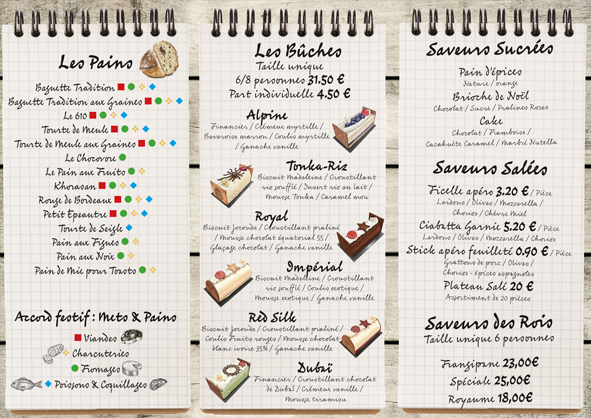 Les Pains
Baguette Tradition
Baguette Tradition aux Graines
Le 610
Tourte de Meule
Tourte de Meule aux Graines
Le Chocovore
Le Pain aux Fruits
Khorasan
Rouge de Bordeaux
Petit Epeautre
Tourte de Seigle
Pain aux Figues
Pain aux Noix
Pain de Mie pour Toasts
Accord festif : Mets & Pains
Viandes
Charcuteries
Fromages
Poissons & Coquillages
Les Bûches
Taille unique
6/8 personnes 31.50 €
Part individuelle 4.50 €
Alpine
Financier / Crémeux myrtille /
Bavaroise marron / Coulis myrtille
/ Ganache vanille
Tonka-Riz
Biscuit Madeleine / Croustillant
riz soufflé / Insert riz au lait /
Mousse Tonka / Caramel mou
Royal
Biscuit Joconde / Croustillant praliné
/ Mousse chocolat équatorial 55 /
Glaçage chocolat / Ganache vanille
Impérial
Biscuit Madeleine / Croustillant
riz soufflé / Coulis exotique /
Mousse exotique / Ganache vanille
Red Silk
Biscuit Joconde / Croustillant praliné /
Coulis Fruits rouges / Mousse chocolat
blanc ivoire 35% / Ganache vanille
Dubaï
Financier / Croustillant chocolat
de Dubaï / Crémeux vanille /
Mousse tiramisu
Saveurs Sucrées
Pain d'épices
Nature / orange
Brioche de Noël
Chocolat / Sucre / Pralines Roses
Cake
Chocolat / Framboise /
Cacahuète Caramel / Marbré Nutella
Saveurs Salées
Ficelle apéro 3.20 € / Pièce
Lardons / Olives / Mozzarella /
Chorizo / Chèvre Miel
Ciabatta Garnie 5.20 € / Pièce
Lardons / Olives / Mozzarella / Chorizo
Stick apéro feuilleté 0.90 € / Pièce
Grattons de porc / Olives /
Chorizo - épices espagnoles
Plateau Salé 20 €
Assortiment de 20 pièces
Saveurs des Rois
Taille unique 6 personnes
Frangipane 23,00€
Spéciale 25,00€
Royaume 18,00€